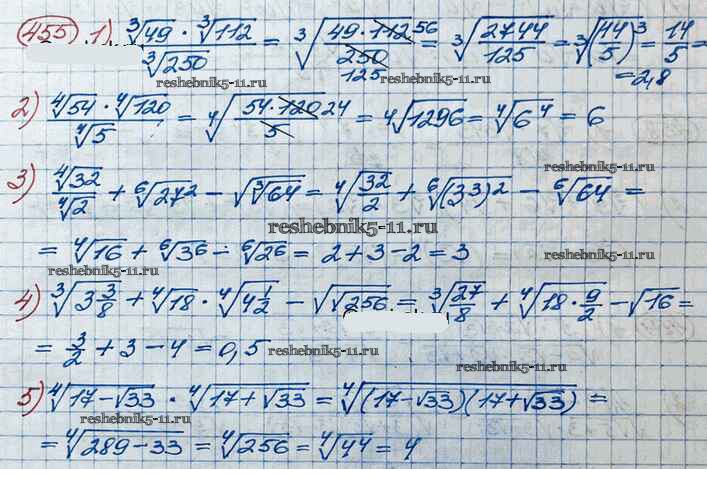 455. 1) ∛49 · ∛112 / ∛250 = ∛(49 · 112 56 / 250 125) = ∛(2744/125) = ∛(14/5)³ = 14/5 =
= 2,8
reshebnik5-11.ru reshebnik5-11.ru
2) ∜54 · ∜120 / ∜5 = ∜(54 · 120 24 / 5) = ∜1296 = ∜6⁴ = 6
reshebnik5-11.ru
3) ∜32 / ∜2 + ⁶√27² − √∛64 = ∜(32/2) + ⁶√(3³)² − ⁶√64 =
reshebnik5-11.ru
= ∜16 + ⁶√3⁶ − ⁶√2⁶ = 2 + 3 − 2 = 3
reshebnik5-11.ru
reshebnik5-11.ru
4) ∛(3 3/8) + ∜18 · ∜(4 1/2) − √√256 = ∛(27/8) + ∜(18 · 9/2) − √16 =
= 3/2 + 3 − 4 = 0,5
reshebnik5-11.ru
reshebnik5-11.ru
5) ∜(17 − √33) · ∜(17 + √33) = ∜((17 − √33)(17 + √33)) =
reshebnik5-11.ru
= ∜(289 − 33) = ∜256 = ∜4⁴ = 4
reshebnik5-11.ru